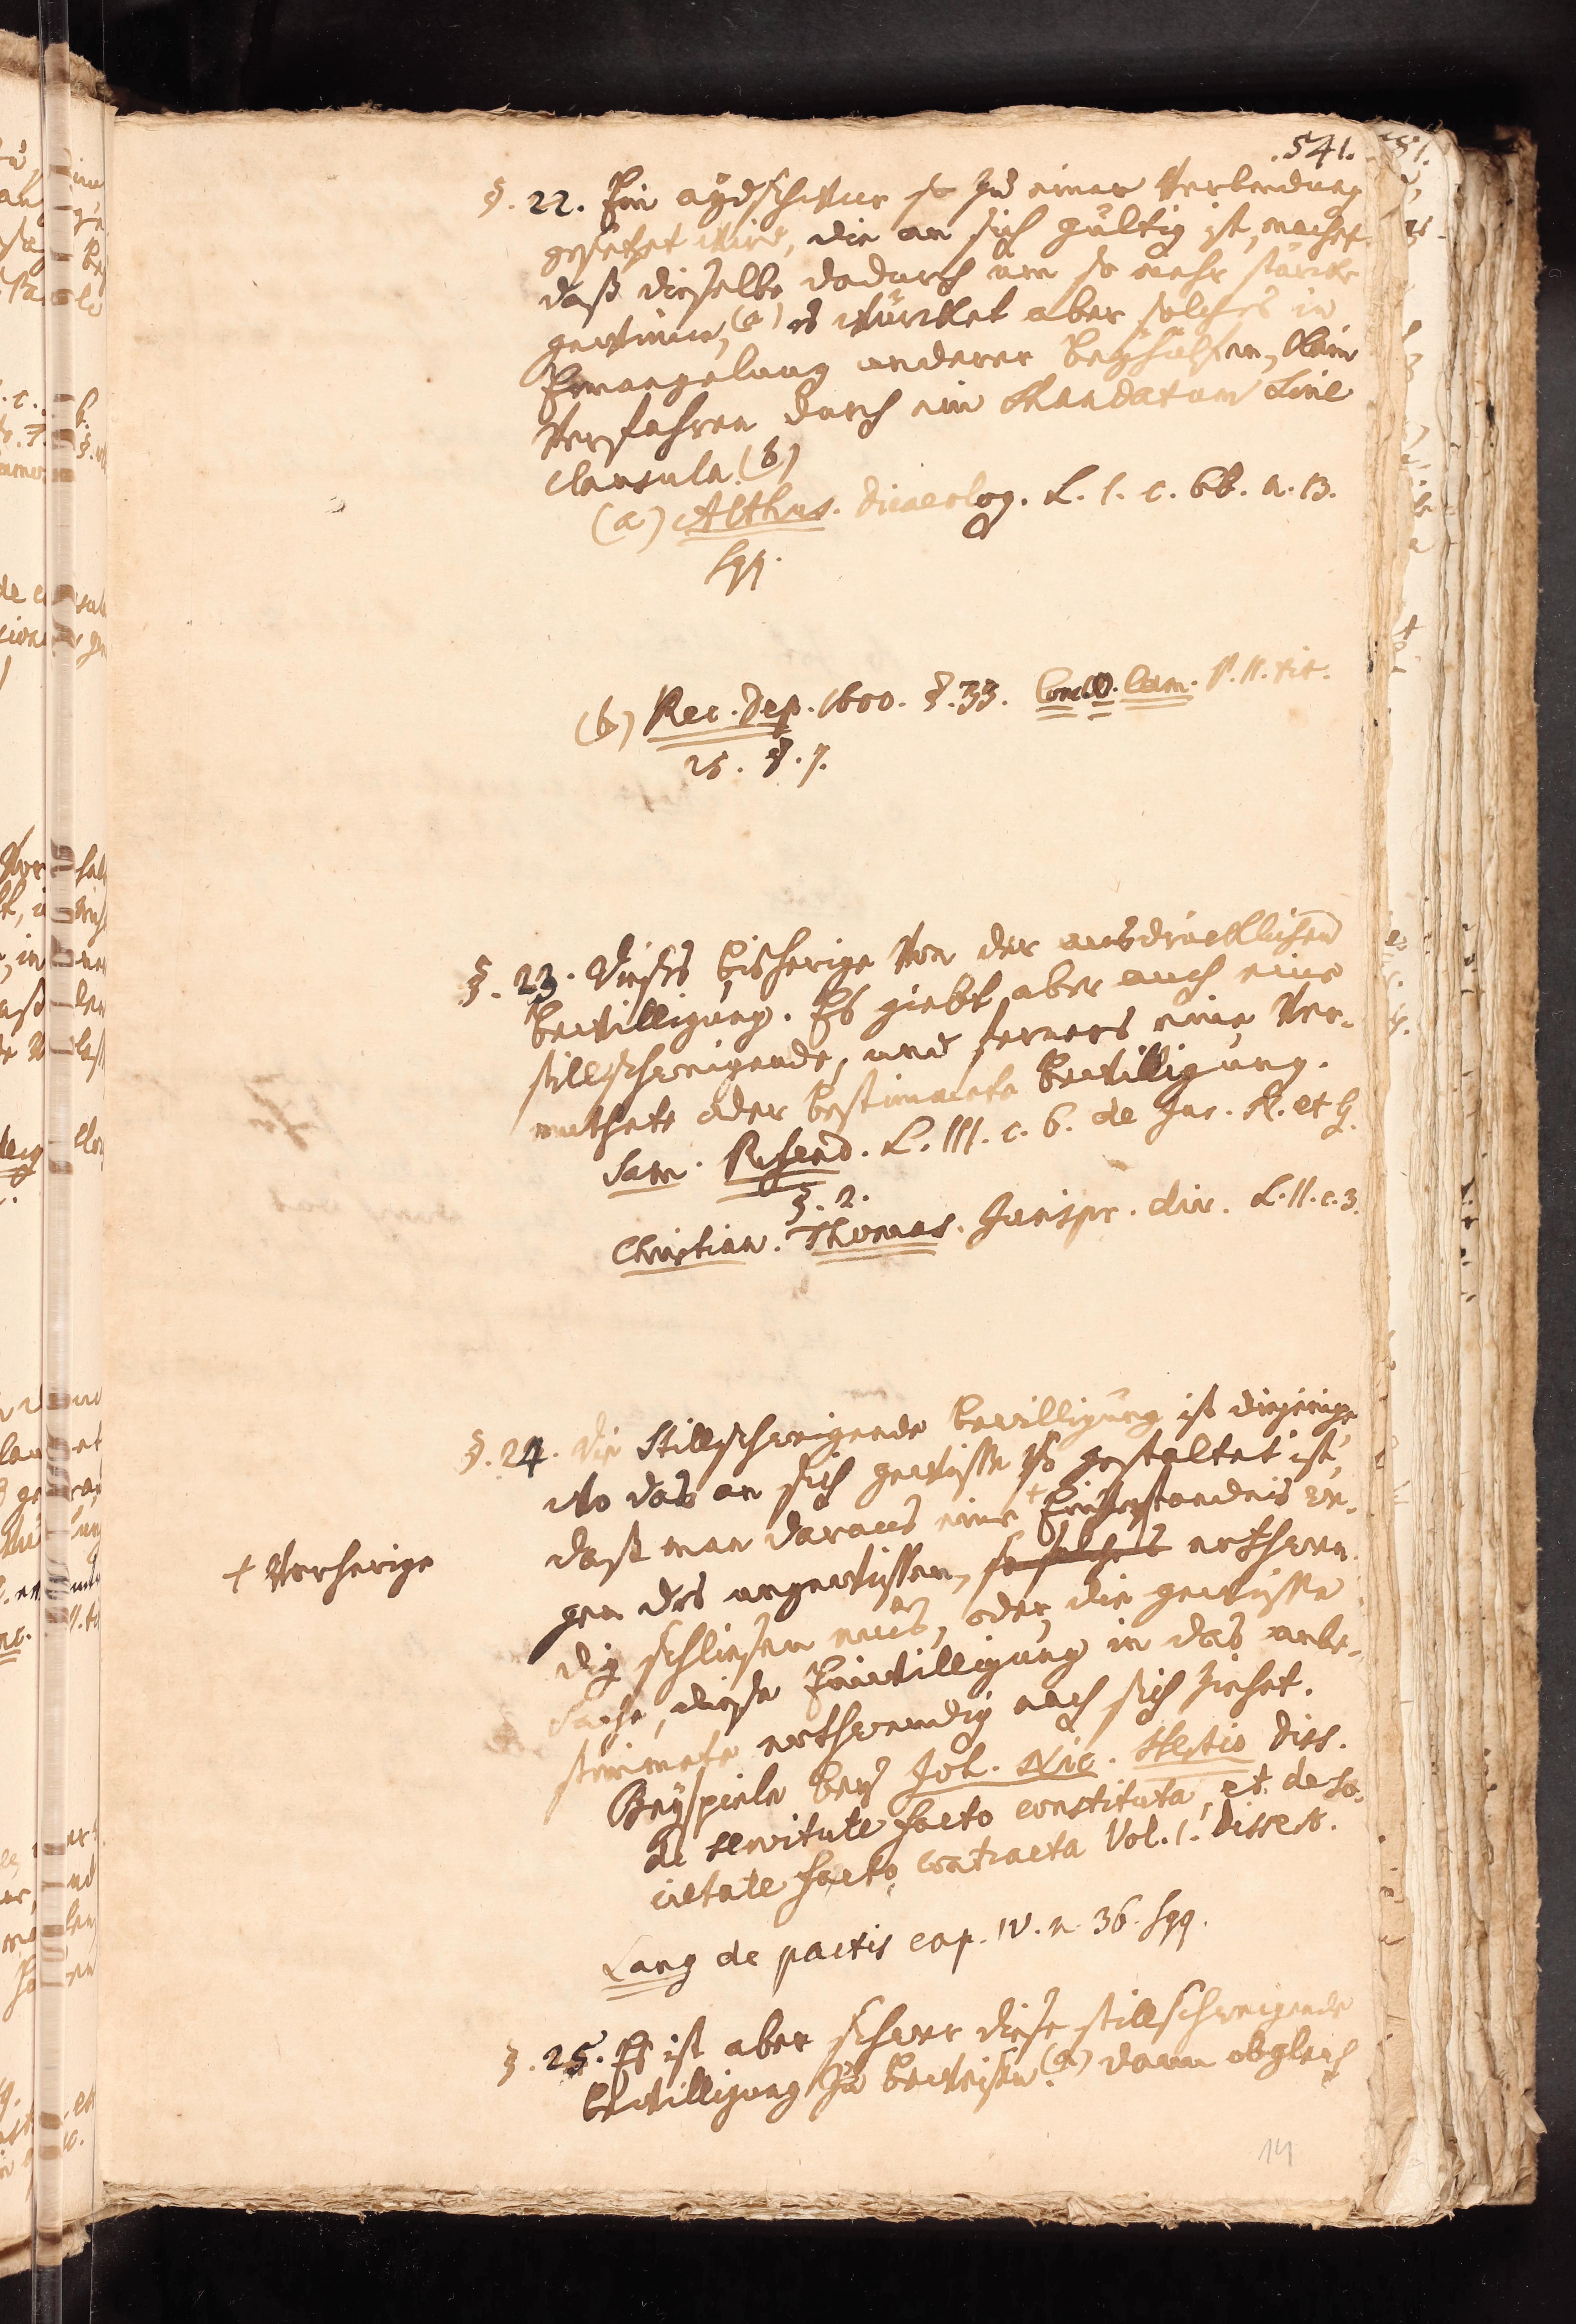 .541.
§. 22. Ein aydschwur so zu einer Verbendung
gesetzet wird, die an sich gültig ist, machet
daß dieselbe dadurch um so mehr stärcke
gewinne, (a) es würcket aber solches in
Ermangelung anderer beyhülfen, kein
Verfahren durch ein Mandatum sine
clausula. (b)
(a) Althus. dicaeolog. L. 1. c. 66. n. 13.
sqq.
(b) Rec. Dep. 1600. §. 33. Conc. O. Cam. P. II. tit.
25. §. 7.
§. 23. Dieses bisherige von der ausdrücklichen
bewilligung. Es giebt aber auch eine
stillschweigende, und ferners eine Ver-
muthete oder bestimmete bewilligung.
Sam. Pufend. L. III. c. 6. de Jur. N. et G.
§. 2.
Christian. Thomas. Jurispr. div. L. II. c. 3.
§. 24. Die Stillschweigende bewilligung ist diejenige
wo das an sich gewisse so gestaltet ist,
daß man daraus eine + Einverstandnis we-
gen des ungewissen, so solches nothwen
dig schliesen mus, oder, die gewisse
Sache, diese Einwilligung in das unbe-
stimmete nothwendig nach sich ziehet.
+ Vorherige
Beyspiele bey Joh. Nic. Hertio diss.
de servitute facto constituta, et de so-
cietate facto contracta Vol. 1. dissert.
Lang de pactis cap. IV. n. 36. sqq.
§. 25. Es ist aber schwer diese stillschweigende
bewilligung zu beweisen. (a) dann obgleich
14